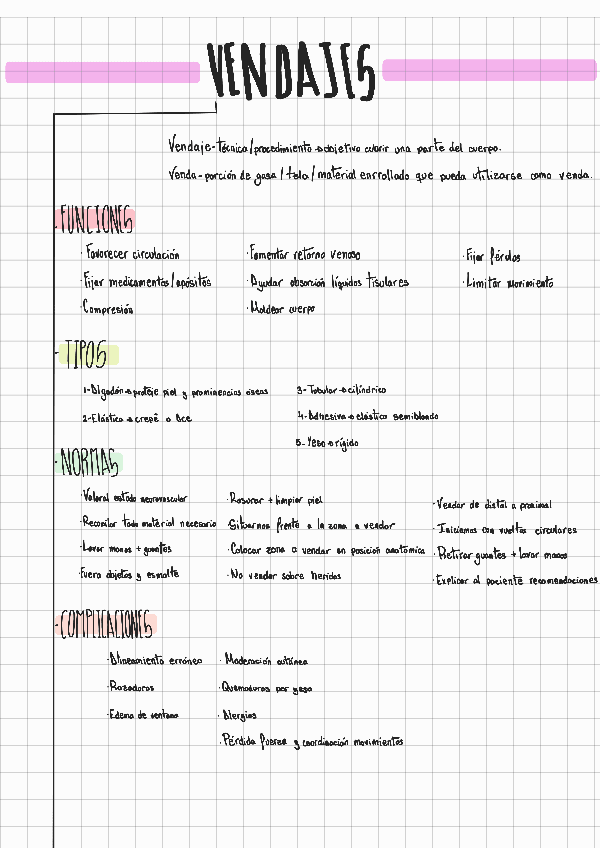 VENDAJES
Vendaje-técnica/procedimiento→objetivo cubrir una parte del cuerpo.
Venda-porción de gasa/tela/material enrrollado que pueda utilizarse como venda.
·FUNCIONES
·Favorecer circulación
·Fijar medicamentos/apósitos
·Compresión
·Fomentar retorno venoso
·Ayudar absorción líquidos tisulares
·Moldear cuerpo
·Fijar férulas
·Limitar movimiento
·TIPOS
1-Algodón→proteje piel y prominencias óseas
2-Elástica→crepé o Ace
3-Tubular→cilíndrico
4-Adhesiva→elástica semiblanda
5-Yeso→rígido
·NORMAS
·Valoral estado neurovascular
·Recopilar todo material necesario
·Lavar manos + guantes
·Fuera objetos y esmalte
·Rasurar + limpiar piel
·Situarnos frente a la zona a vendar
·Colocar zona a vendar en posición anatómica
·No vendar sobre heridas
·Vendar de distal a proximal
·Iniciamos con vueltas circulares
·Retirar guantes + lavar manos
·Explicar al paciente recomendaciones
·COMPLICACIONES
·Alineamiento erróneo
·Rozaduras
·Edema de ventana
·Maderación cutánea
·Quemaduras por yeso
·Alergias
·Pérdida fuerza y coordinación movimientos